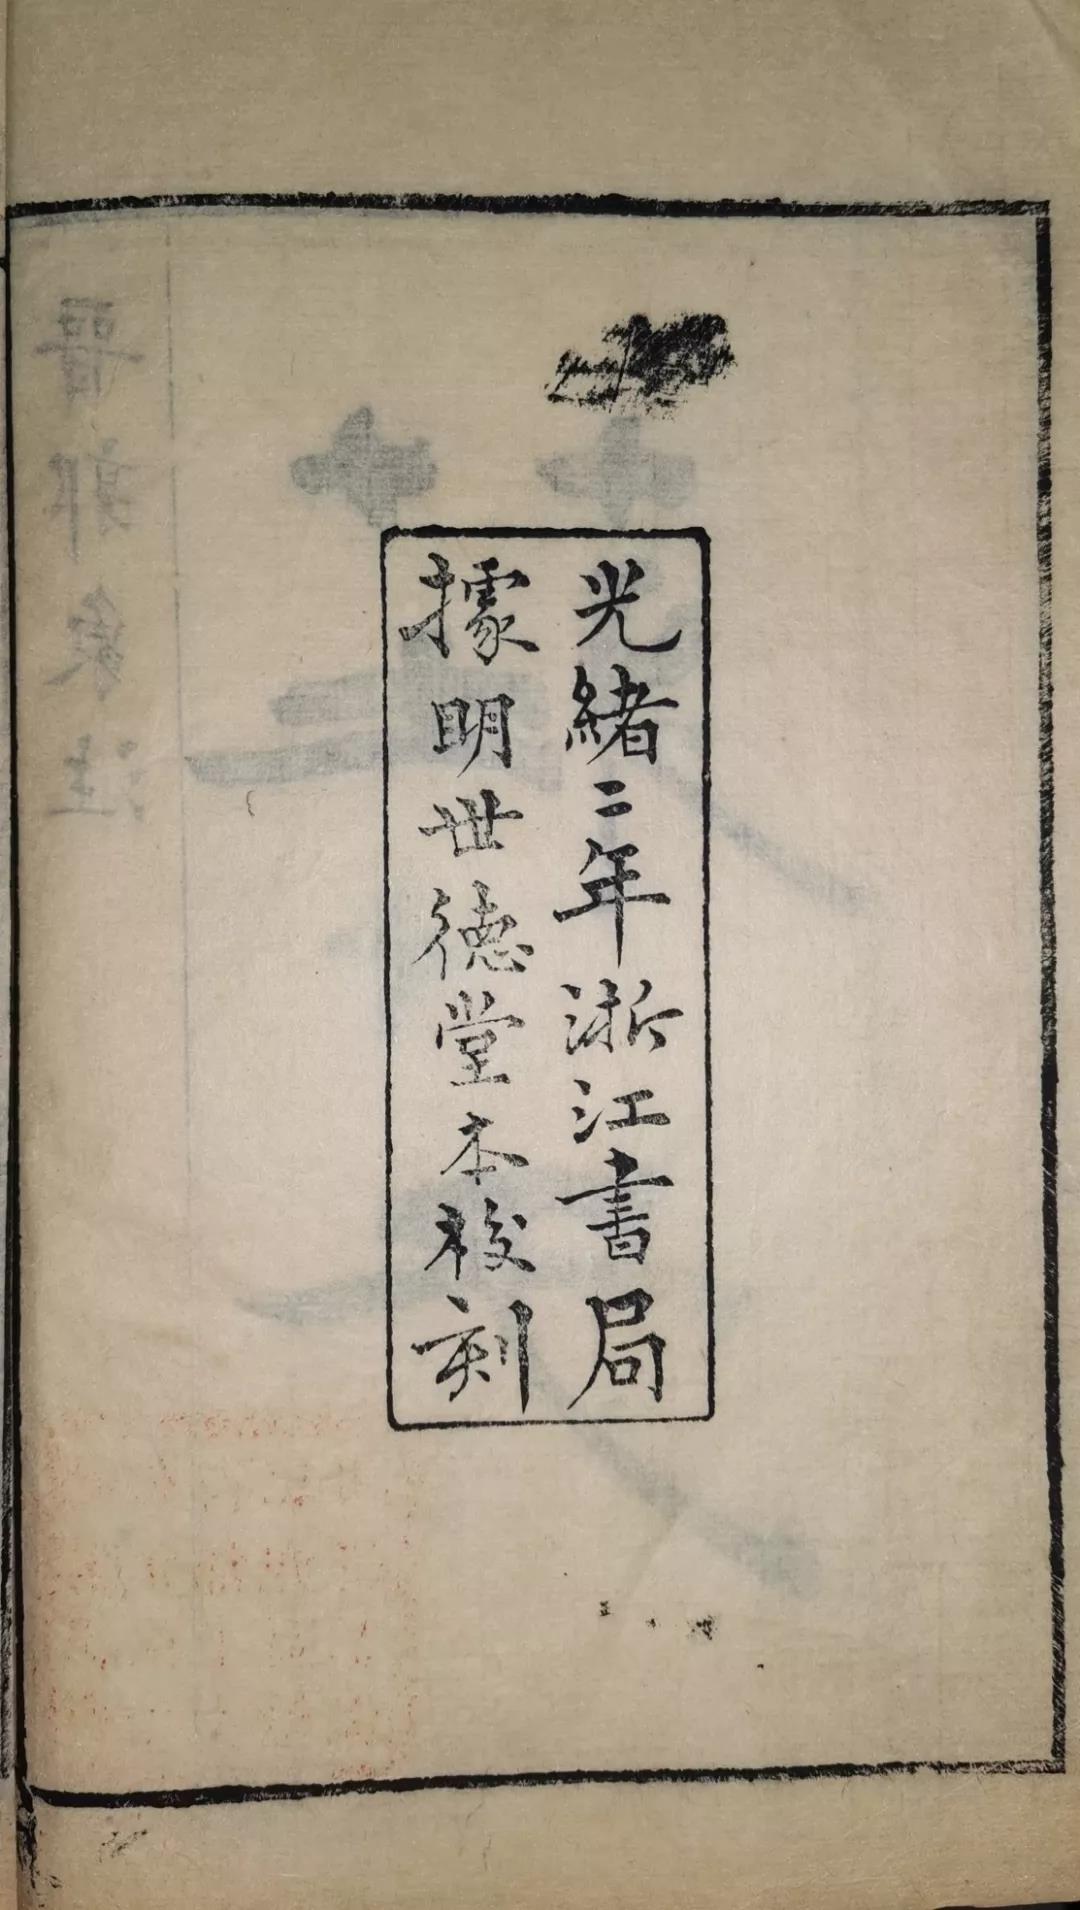 光緒二年浙江書局
據明世德堂本校刻
晉郭象注